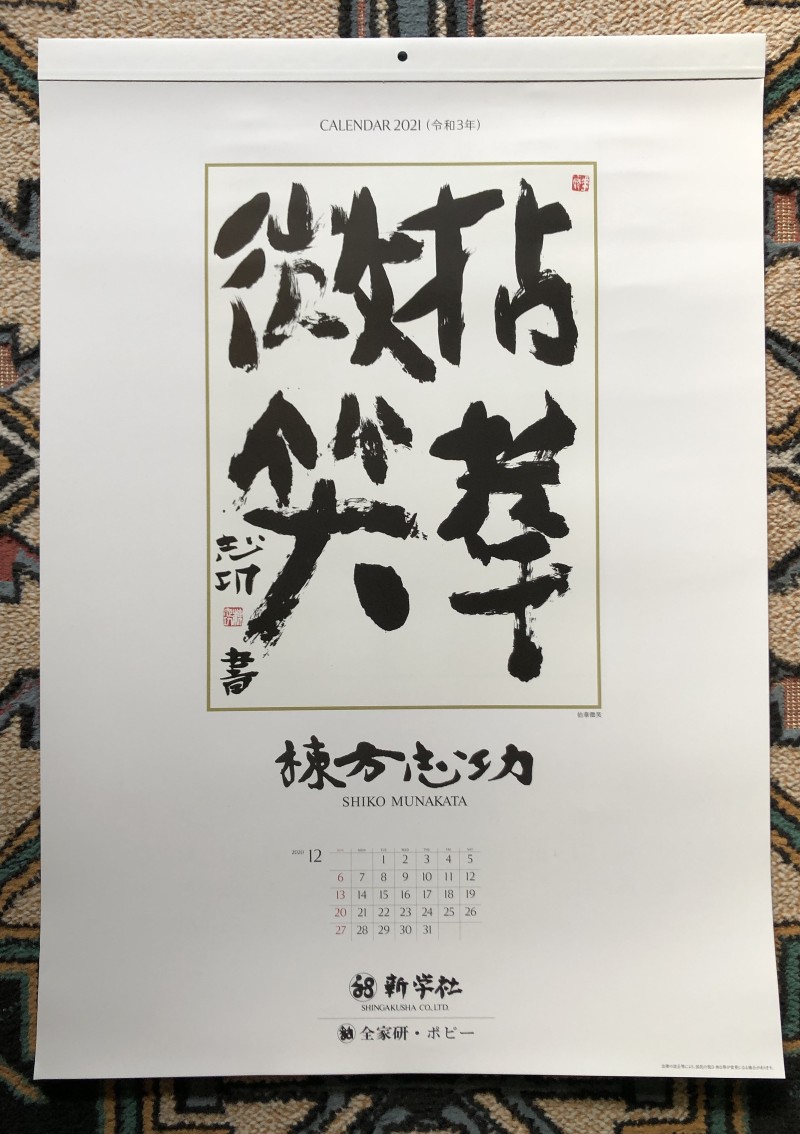 CALENDAR 2021 (令和3年)
拈華
微笑
志功
書
拈華微笑
棟方志功
SHIKO MUNAKATA
2020 12
SUN MON TUE WED THU FRI SAT
1 2 3 4 5
6 7 8 9 10 11 12
13 14 15 16 17 18 19
20 21 22 23 24 25 26
27 28 29 30 31
新学社
SHINGAKUSHA CO.,LTD.
全家研・ポピー